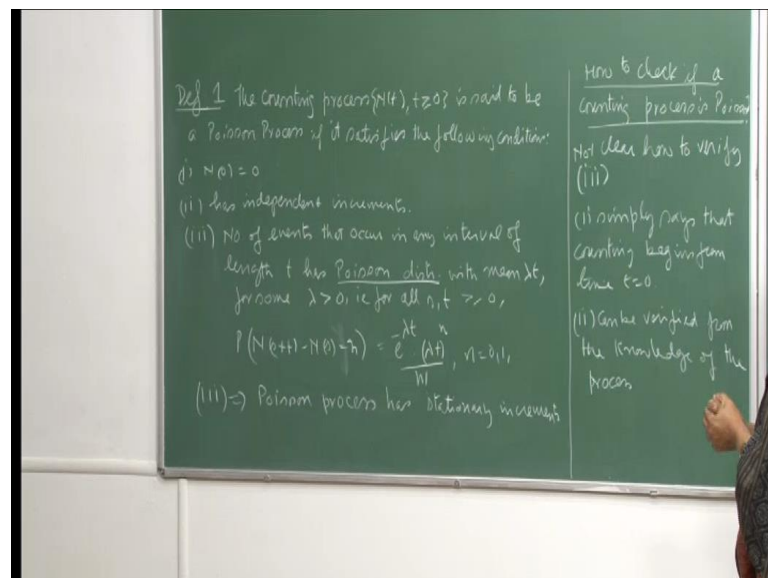 Def 1 The counting process {N(t), t≥0} is said to be
a Poisson Process if it satisfies the following condition:
(i) N(0) = 0
(ii) has independent increments.
(iii) No of events that occur in any interval of
length t has Poisson dist. with mean λt,
for some λ > 0, ie for all s, t >, 0,
P(N(s+t) - N(s) = n) = e^{-λt} (λt)^n / n!, n=0,1,
(iii) ⇒ Poisson process has stationary increments
How to check if a
counting process is Poisson?
Not clear how to verify
(iii)
(i) simply says that
counting begins from
time t=0
(ii) Can be verified from
the knowledge of the
process